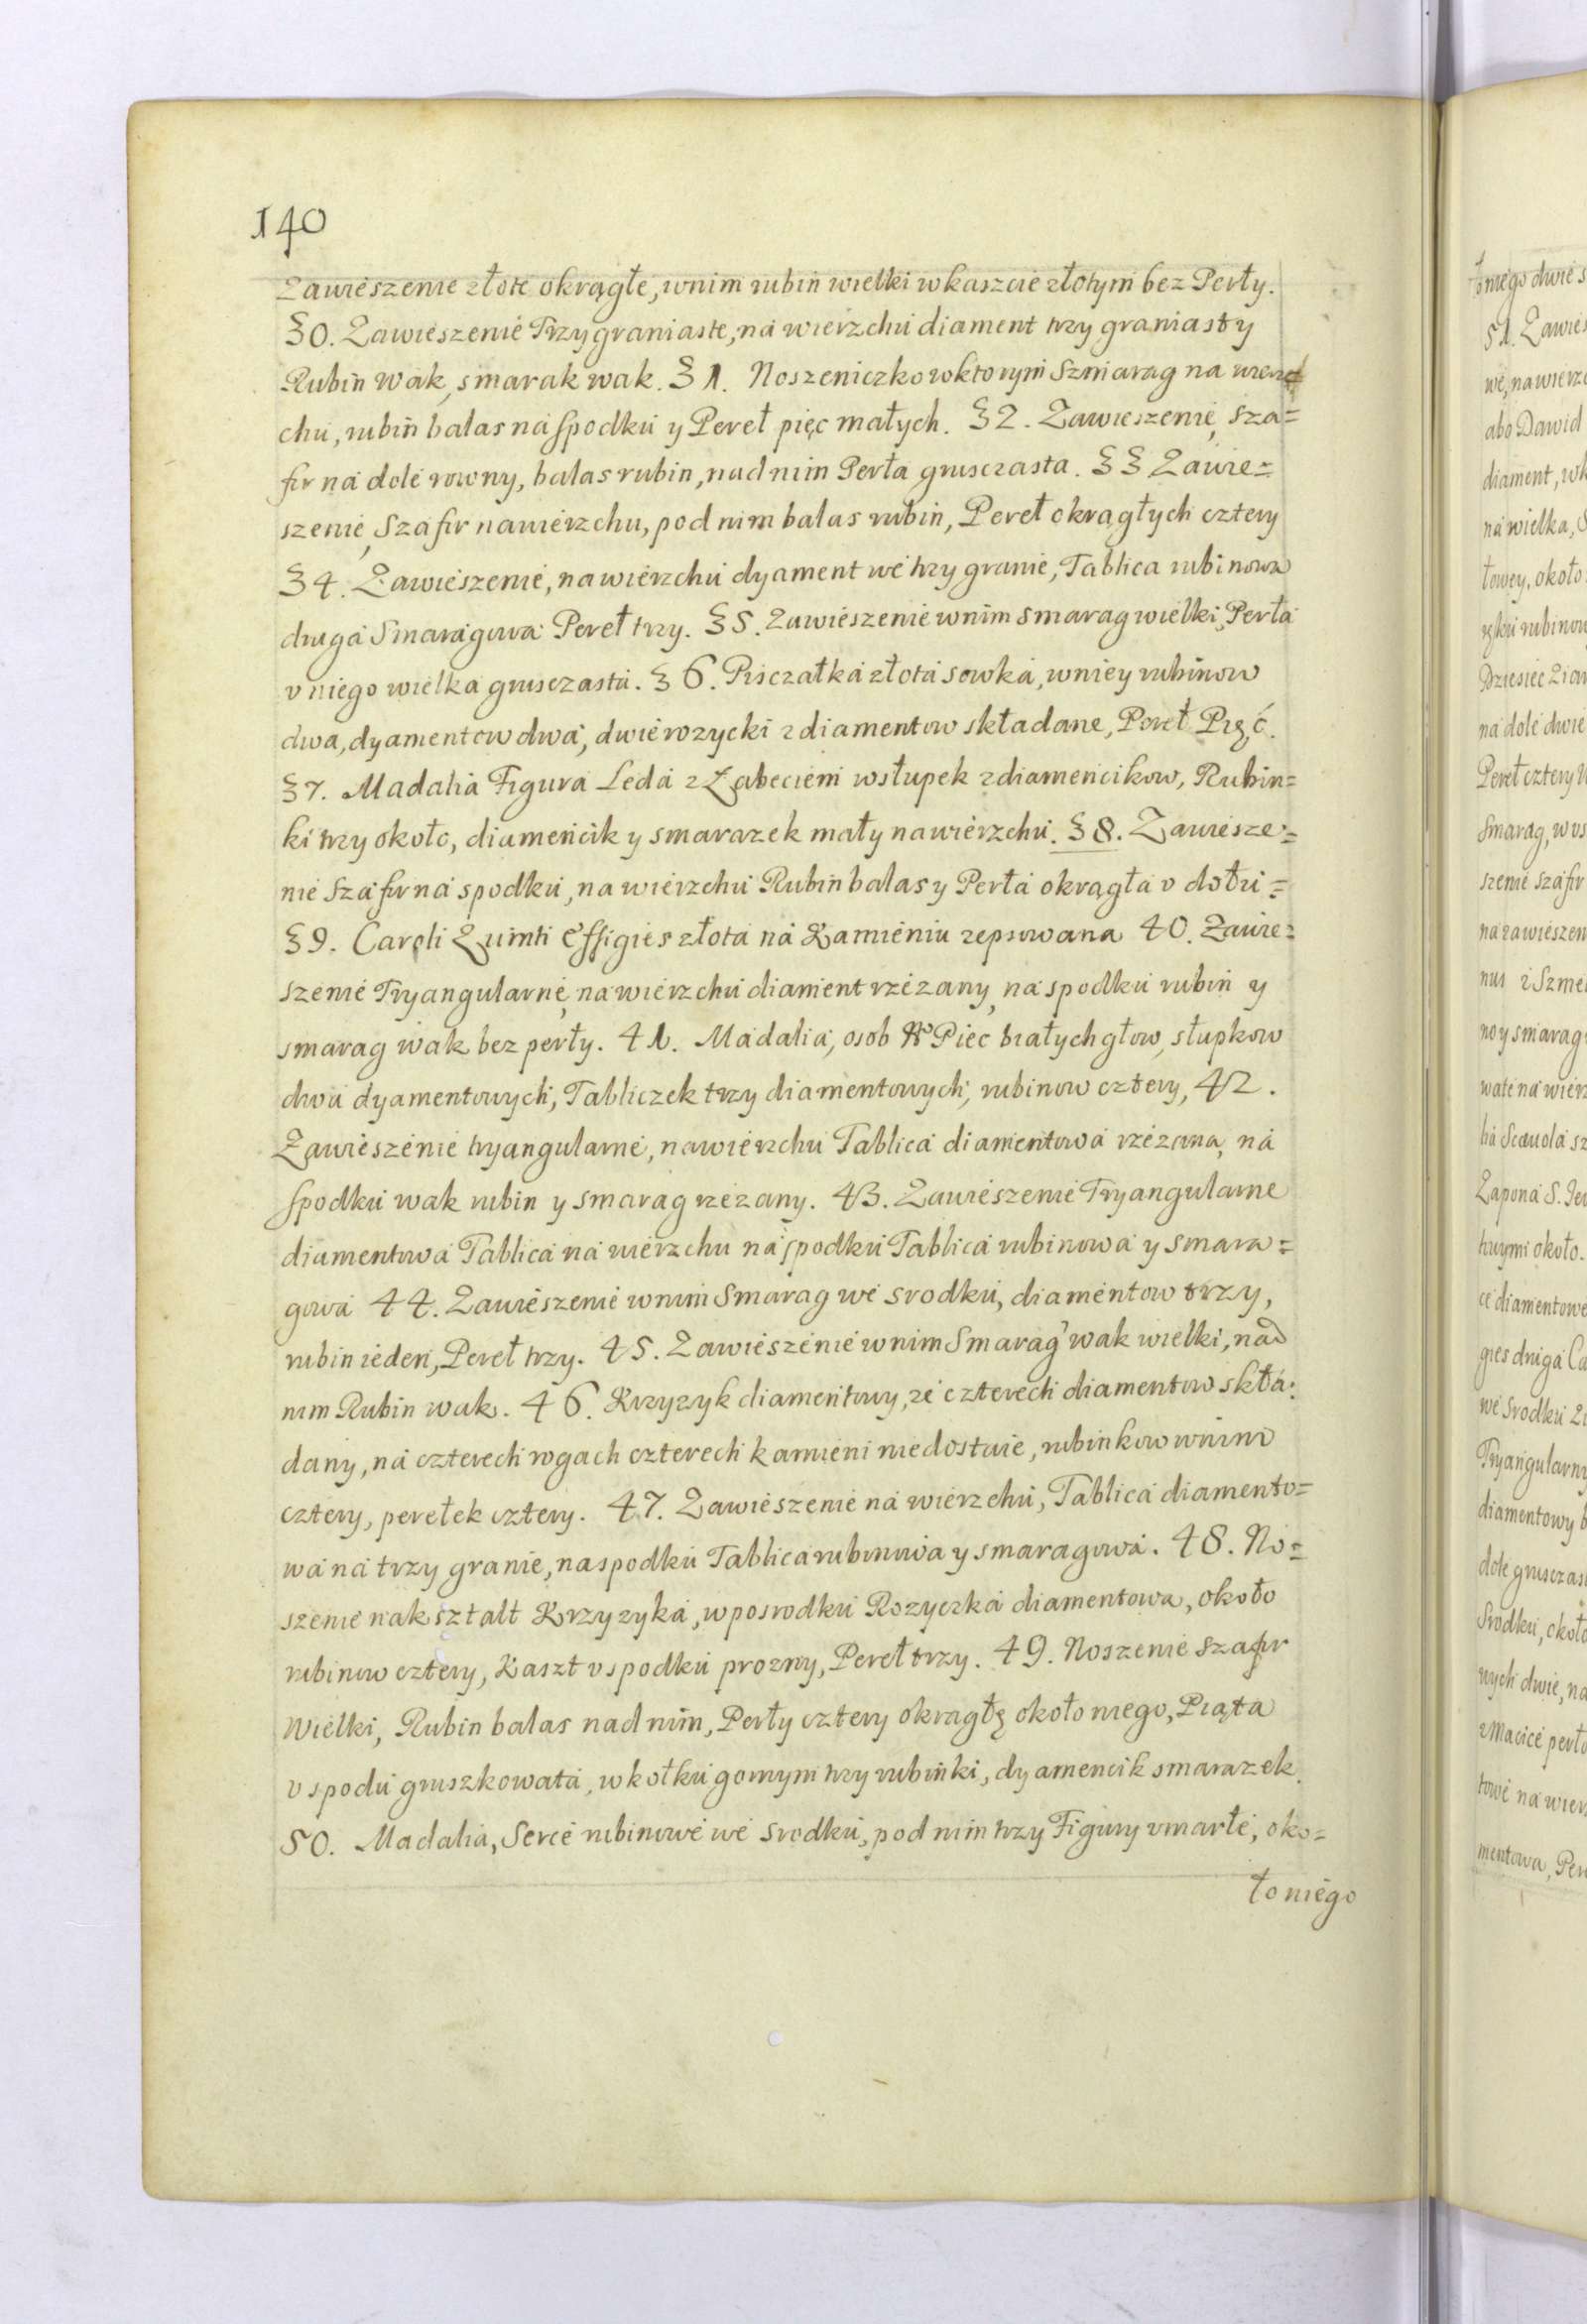 140
Zawieszenie złote okrągłe, wnim rubin wielki wkaszcie złotym bez Perły.
30. Zawieszenie Trzygraniaste, na wierzchu diament trzy graniasty
Rubin wak, smarak wak. 31. Noszeniczko wktorym Szmarag na wierz
chu, rubin balas na spodku y Pereł pięc małych. 32. Zawieszenie, sza=
fir na dole rowny, balas rubin, nad nim Perła grusczasta. 33 Zawie=
szenie, Szafir nawierzchu, pod nim balas rubin, Pereł okrągłych cztery
34. Zawieszenie, nawierzchu dyament we trzy granie, Tablica rubinowa
druga Smaragowa Pereł trzy. 35. Zawieszenie wnim smarag wielki, Perła
v niego wielka grusczasta. 36. Pisczałka złota sowka, wniey rubinow
dwa, dyamentow dwa, dwie rozycki z diamentow składane, Pereł Pięć.
37. Madalia Figura Leda z Łabeciem wsłupek zdiamencikow, Rubin=
ki trzy około, diamencik y smarazek mały nawierzchu. 38. Zawiesze=
nie Szafir na spodku, na wierzchu Rubin balas y Perła okrągła v dołu=
39. Caroli Quinti Effigies złota na Kamieniu zepsowana 40. Zawie=
szenie Tryangularne, na wierzchu diament rzezany, na spodku rubin y
smarag wak bez perły. 41. Madalia, osob Piec białychgłow, słupkow
dwa dyamentowych, Tabliczek trzy diamentowych, rubinow cztery, 42.
Zawieszenie tryangularne, nawierzchu Tablica diamentowa rzezana, na
spodku wak rubin y smarag rzezany. 43. Zawieszenie Tryangularne
diamentowa Tablica na wierzchu na spodku Tablica rubinowa y smara=
gowa 44. Zawieszenie wnim Smarag we srodku, diamentow trzy,
rubin ieden, Pereł trzy. 45. Zawieszenie wnim Smarag wak wielki, nad
nim Rubin wak. 46. Krzyzyk diamentowy, ze czterech diamentow skła=
dany, na czterech rogach czterech kamieni niedostaie, rubinkow wnim
cztery, perełek cztery. 47. Zawieszenie na wierzchu, Tablica diamento=
wa na trzy granie, naspodku Tablica rubinowa y smaragowa. 48. No=
szenie nakształt Krzyzyka, wposrodku Rozyczka diamentowa, około
rubinow cztery, Kaszt vspodku prozny, Pereł trzy. 49. Noszenie szafir
Wielki, Rubin balas nad nim, Perły cztery okragłę około niego, Piąta
v spodu gruszkowata, wkołku gornym trzy rubinki, dyamencik smarazek.
50. Madalia, Serce rubinowe we srodku, pod nim trzy Figury vmarłe, oko=
ło niego